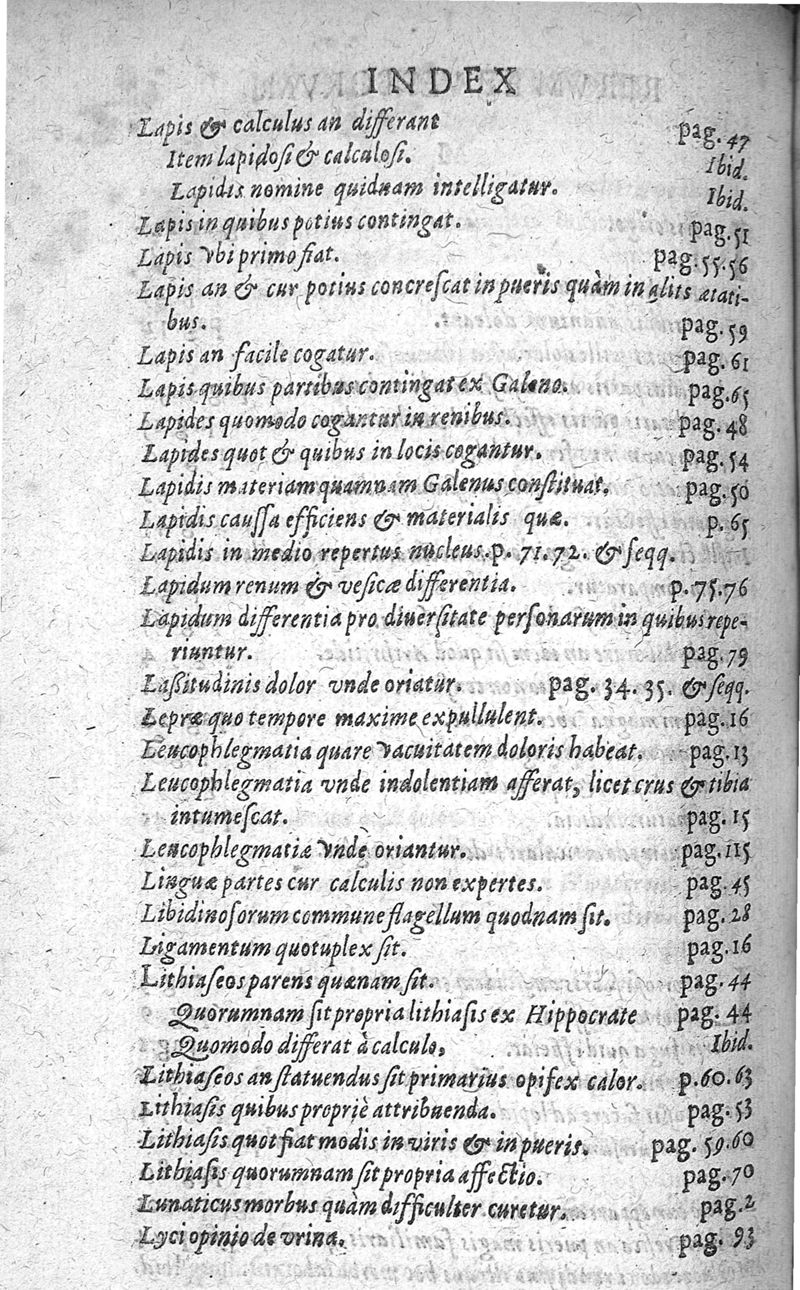 INDEX
Lapis & calculus an differant pag. 47
Item lapidosi & calculosi. Ibid.
Lapidis nomine quidnam intelligatur. Ibid.
Lapis in quibus potius contingat. pag. 51
Lapis vbi primo fiat. pag. 55. 56
Lapis an & cur potius concrescat in pueris quàm in aliis ætati-
bus. pag. 59
Lapis an facile cogatur. pag. 61
Lapis quibus partibus contingat ex Galeno. pag. 65
Lapides quomodo cogantur in renibus. pag. 48
Lapides quot & quibus in locis cogantur. pag. 54
Lapidis materiam quamnam Galenus constituat. pag. 50
Lapidis caussa efficiens & materialis quæ. p. 65
Lapidis in medio repertus nucleus. p. 71. 72. & seqq.
Lapidum renum & vesicæ differentia. p. 75. 76
Lapidum differentia pro diuersitate personarum in quibus repe-
riuntur. pag. 79
Lassitudinis dolor vnde oriatur. pag. 34. 35. & seqq.
Lepræ quo tempore maxime expullulent. pag. 16
Leucophlegmatia quare vacuitatem doloris habeat. pag. 13
Leucophlegmatia vnde indolentiam afferat, licet crus & tibia
intumescat. pag. 15
Leucophlegmatiæ vndè oriantur. pag. 115
Linguæ partes cur calculis non expertes. pag. 45
Libidinosorum commune flagellum quodnam sit. pag. 28
Ligamentum quotuplex sit. pag. 16
Lithiaseos parens quænam sit. pag. 44
Quorumnam sit propria lithiasis ex Hippocrate pag. 44
Quomodo differat à calculo, Ibid.
Lithiaseos an statuendus sit primarius opifex calor. p. 60. 63
Lithiasis quibus propriè attribuenda. pag. 53
Lithiasis quot fiat modis in viris & in pueris. pag. 59. 60
Lithiasis quorumnam sit propria affectio. pag. 70
Lunaticus morbus quàm difficulter curetur. pag. 2
Lyci opinio de vrina. pag. 93